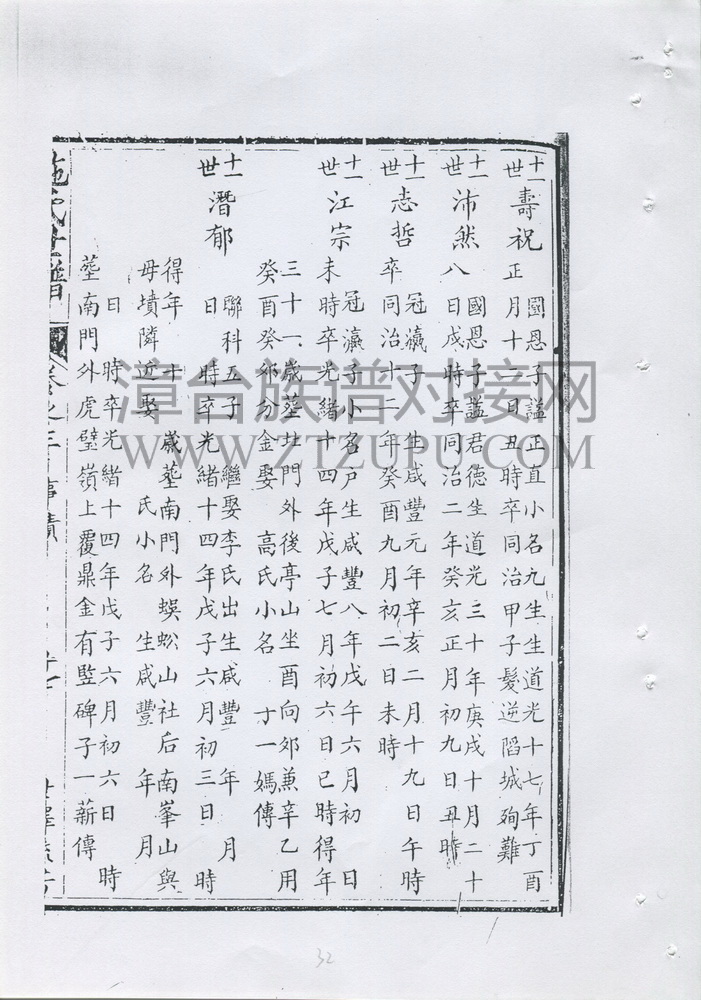 十一世 壽祝 國恩子謚正直小名九生生道光十七年丁酉
正月十二日丑時卒同治甲子髮逆陷城殉難
十一世 沛然 國恩子謚君德生道光三十年庚戌十月二十
八日戍時卒同治二年癸亥正月初九日丑時
十一世 志哲 冠瀛子 生咸豐元年辛亥二月十九日午時
卒同治十二年癸酉九月初二日未時
十一世 江宗 冠瀛子小名戶生咸豐八年戊午六月初 日
未時卒光緒十四年戊子七月初六日巳時得年
三十一歲塟北門外後亭山坐酉向卯兼辛乙用
癸酉癸卯分金娶 高氏小名 寸一媽傳
十一世 潛郁 聯科五子 繼娶李氏出生咸豐 年 月
日 時卒光緒十四年戊子六月初三日 時
得年 十 歲塟南門外蜈蚣山社后南峯山與
母墳隣近娶 氏小名 生咸豐 年 月
日 時卒光緒十四年戊子六月初六日 時
塟南門外虎壁嶺上覆鼎金有監碑子一薪傳
施氏世譜 卷之三 事蹟
漳台族谱对接网
WWW.ZTZUPU.COM
32